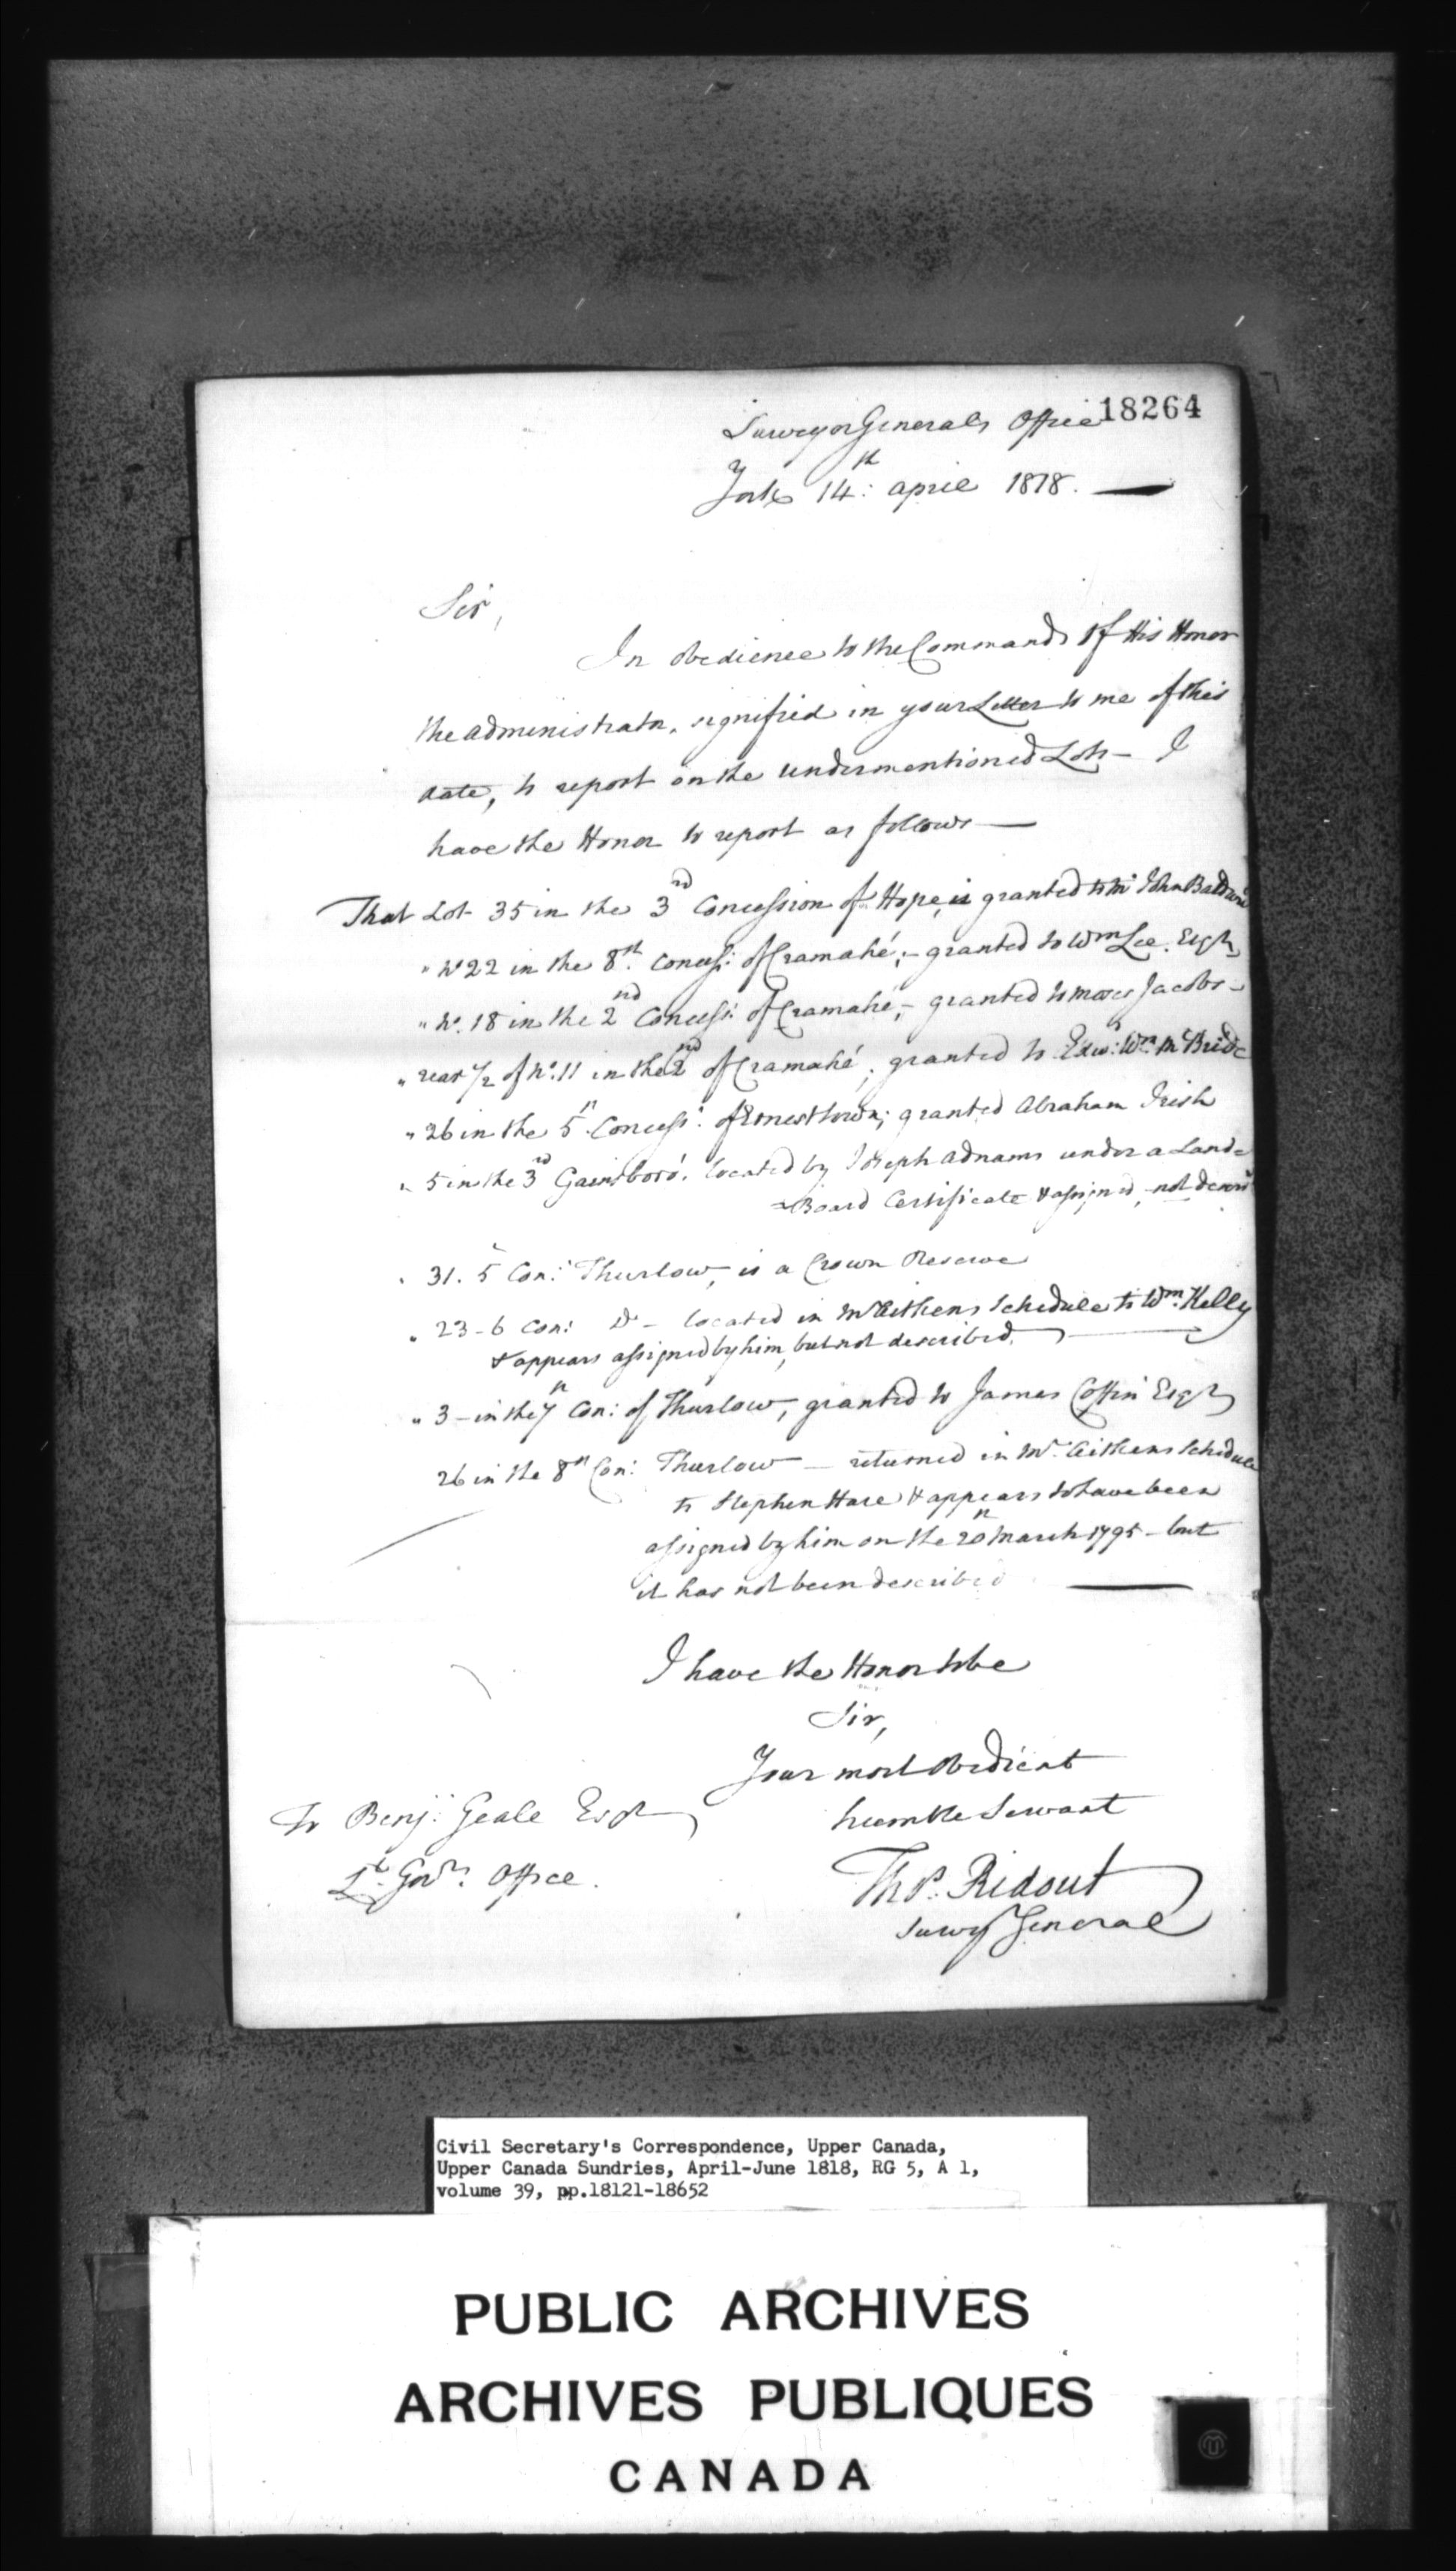 18264
Surveyor Generals Office
York 14th: april 1818. —
Sir,
In obedience to the Commands of His Honor
the administrator, signified in your Letter to me of this
date, to report on the undermentioned Lots – I
have the Honor to report as follows —
That Lot 35 in the 3rd Concession of Hope, is granted to Mr John Baldwin
" No 22 in the 8th. Concess: of Cramahé; – granted to Wm Lee. Esqr,
" No. 18 in the 2nd Concess: of Cramahé, – granted to Moses Jacobs –
" rear 1/2 of No. 11 in the 2nd of Cramahé, granted to Edwd: Wm. McBride
" 26 in the 5th. Concess: of Ernest town; granted Abraham Irish
" 5 in the 3rd Gainsboro'. located by Joseph Adnams under a Land
= Board Certificate & assigned, not
" 31. 5 Con: Thurlow, is a Crown Reserve
" 23 – 6 Con: Do – located in Mr Aitkens Schedule to Wm. Kelly
& appears assigned by him, but not described.
" 3 – in the 7th Con: of Thurlow, granted to James Coffin Esqr
26 in the 8th Con: Thurlow – returned in Mr. Aitkens Schedule
to Stephen Hare & appears to have been
assigned by him on the 20th March 1795 – but
it has not been described —
I have the Honor to be
Sir,
Your most obedient
humble Servant
Thos. Ridout
Survyr General
To Benjn: Geale Esqr
Lt. Govrs. Office.
Civil Secretary's Correspondence, Upper Canada,
Upper Canada Sundries, April-June 1818, RG 5, A 1,
volume 39, pp.18121-18652
PUBLIC ARCHIVES
ARCHIVES PUBLIQUES
CANADA